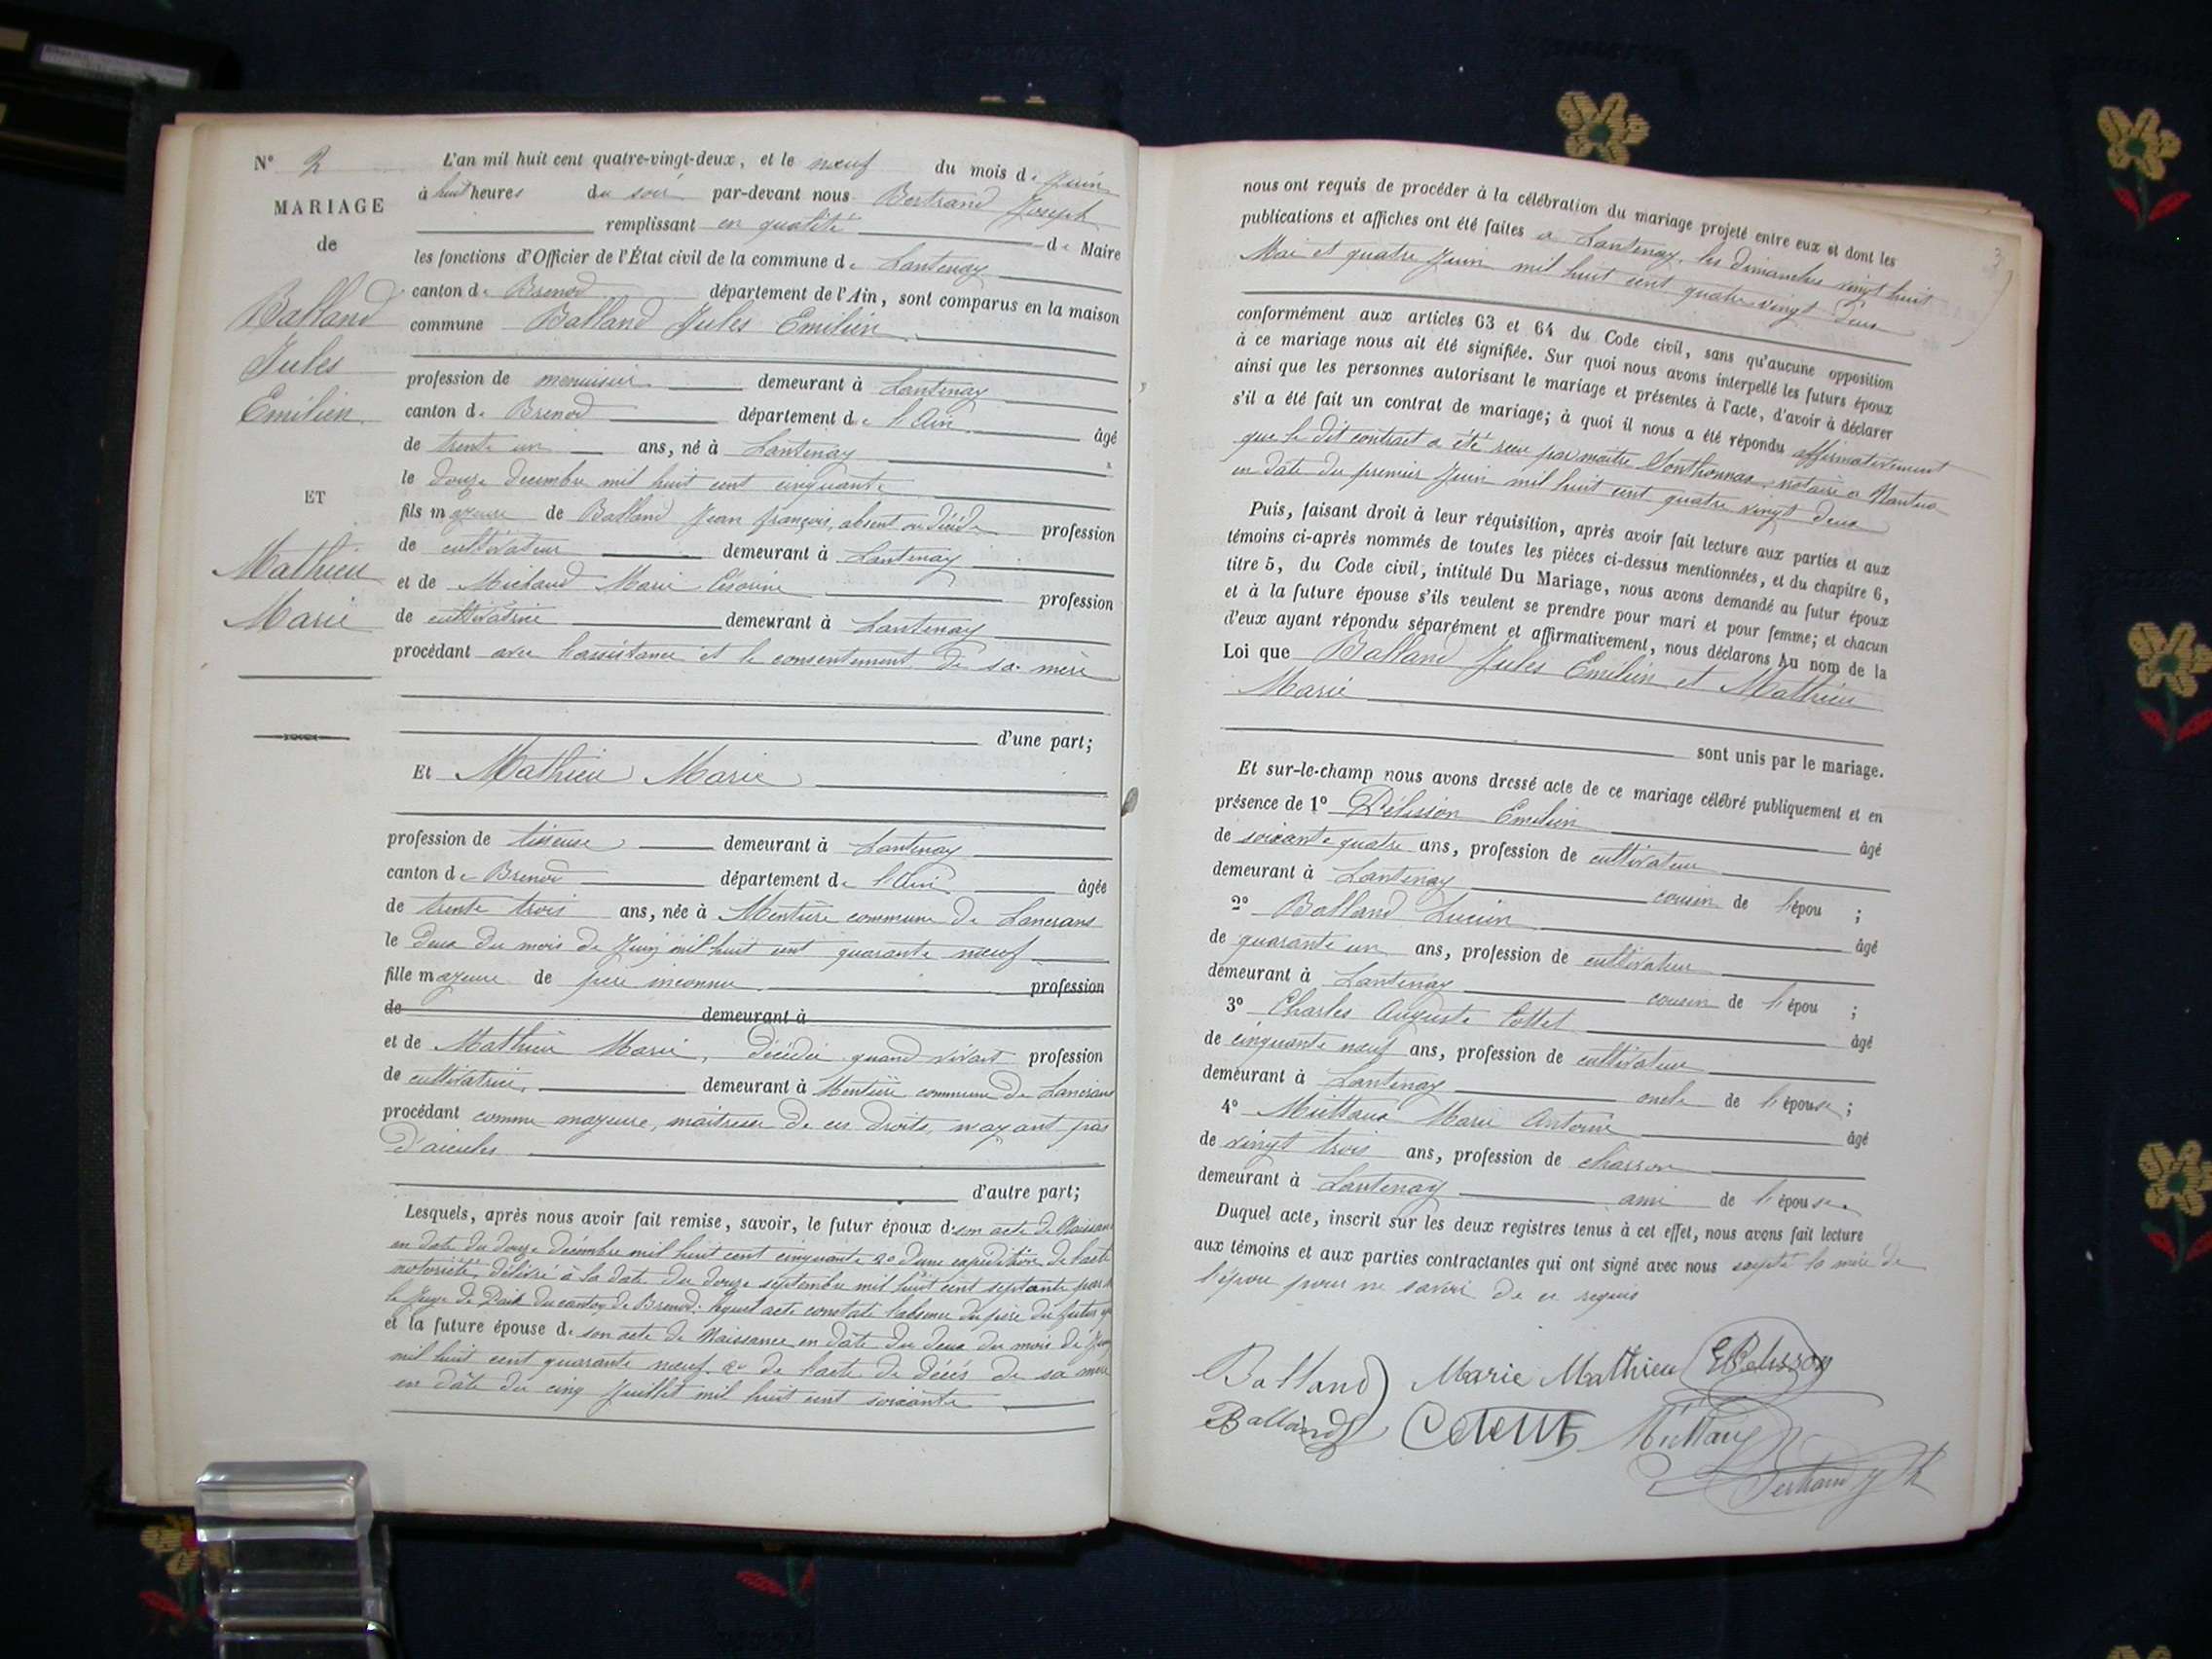 N° 2
MARIAGE
de
Balland
Jules
Emilien
ET
Mathieu
Marie
L'an mil huit cent quatre-vingt-deux, et le neuf du mois de Juin
à huit heures du soir par-devant nous Bertrand Joseph
remplissant en qualité de Maire
les fonctions d'Officier de l'État civil de la commune de Lantenay
canton de Brenod département de l'Ain, sont comparus en la maison
commune Balland Jules Emilien
profession de menuisier demeurant à Lantenay
canton de Brenod département de l'Ain âgé
de trente un ans, né à Lantenay
le douze Decembre mil huit cent cinquante
fils majeur de Balland Jean françois, absent ou décédé profession
de cultivateur demeurant à Lantenay
et de Michaud Marie Césarine profession
de cultivatrice demeurant à Lantenay
procédant avec l'assistance et le consentement de sa mère
d'une part;
Et Mathieu Marie
profession de tisseuse demeurant à Lantenay
canton de Brenod département de l'Ain âgée
de trente trois ans, née à Mentière commune de Lancrans
le deux du mois de Juin mil huit cent quarante neuf
fille majeure de père inconnu profession
de demeurant à
et de Mathieu Marie, décédée quand vivait profession
de cultivatrice demeurant à Mentière commune de Lancrans
procédant comme majeure, maitresse de ces droits, n'ayant pas
d'aieules
d'autre part;
Lesquels, après nous avoir fait remise, savoir, le futur époux de son acte de Naissance
en date du douze décembre mil huit cent cinquante 2° d'une expédition de l'acte
notoriété, délivré à la date du douze septembre mil huit cent septante par
le Juge de Paix du canton de Brenod: lequel acte constate l'absence du père du futur
et la future épouse de son acte de Naissance en date du deux du mois de Juin
mil huit cent quarante neuf 2° de l'acte de décès de sa mère
en date du cinq Juillet mil huit cent soixante
3
nous ont requis de procéder à la célébration du mariage projeté entre eux et dont les
publications et affiches ont été faites a Lantenay, les dimanches vingt huit
Mai et quatre Juin mil huit cent quatre vingt deux
conformément aux articles 63 et 64 du Code civil, sans qu'aucune opposition
à ce mariage nous ait été signifiée. Sur quoi nous avons interpellé les futurs époux
ainsi que les personnes autorisant le mariage et présentes à l'acte, d'avoir à déclarer
s'il a été fait un contrat de mariage; à quoi il nous a été répondu affirmativement
que le dit contrat a été reçu par maitre Sonthonnax, notaire a Nantua
en date du premier Juin mil huit cent quatre vingt deux
Puis, faisant droit à leur réquisition, après avoir fait lecture aux parties et aux
témoins ci-après nommés de toutes les pièces ci-dessus mentionnées, et du chapitre 6,
titre 5, du Code civil, intitulé Du Mariage, nous avons demandé au futur époux
et à la future épouse s'ils veulent se prendre pour mari et pour femme; et chacun
d'eux ayant répondu séparément et affirmativement, nous déclarons Au nom de la
Loi que Balland Jules Emilien et Mathieu
Marie
sont unis par le mariage.
Et sur-le-champ nous avons dressé acte de ce mariage célébré publiquement et en
présence de 1° Pélisson Emilien âgé
de soixante quatre ans, profession de cultivateur
demeurant à Lantenay cousin de l'épou ;
2° Balland Lucien âgé
de quarante un ans, profession de cultivateur
demeurant à Lantenay cousin de l'épou ;
3° Charles Auguste Cottet âgé
de cinquante neuf ans, profession de cultivateur
demeurant à Lantenay oncle de l'épouse;
4° Miettaux Marie Antoine âgé
de vingt trois ans, profession de charron
demeurant à Lantenay ami de l'épouse.
Duquel acte, inscrit sur les deux registres tenus à cet effet, nous avons fait lecture
aux témoins et aux parties contractantes qui ont signé avec nous excepté la mère de
l'épou pour ne savoir de ce requis
Balland Marie Mathieu E Pelisson
Balland
Bertrand